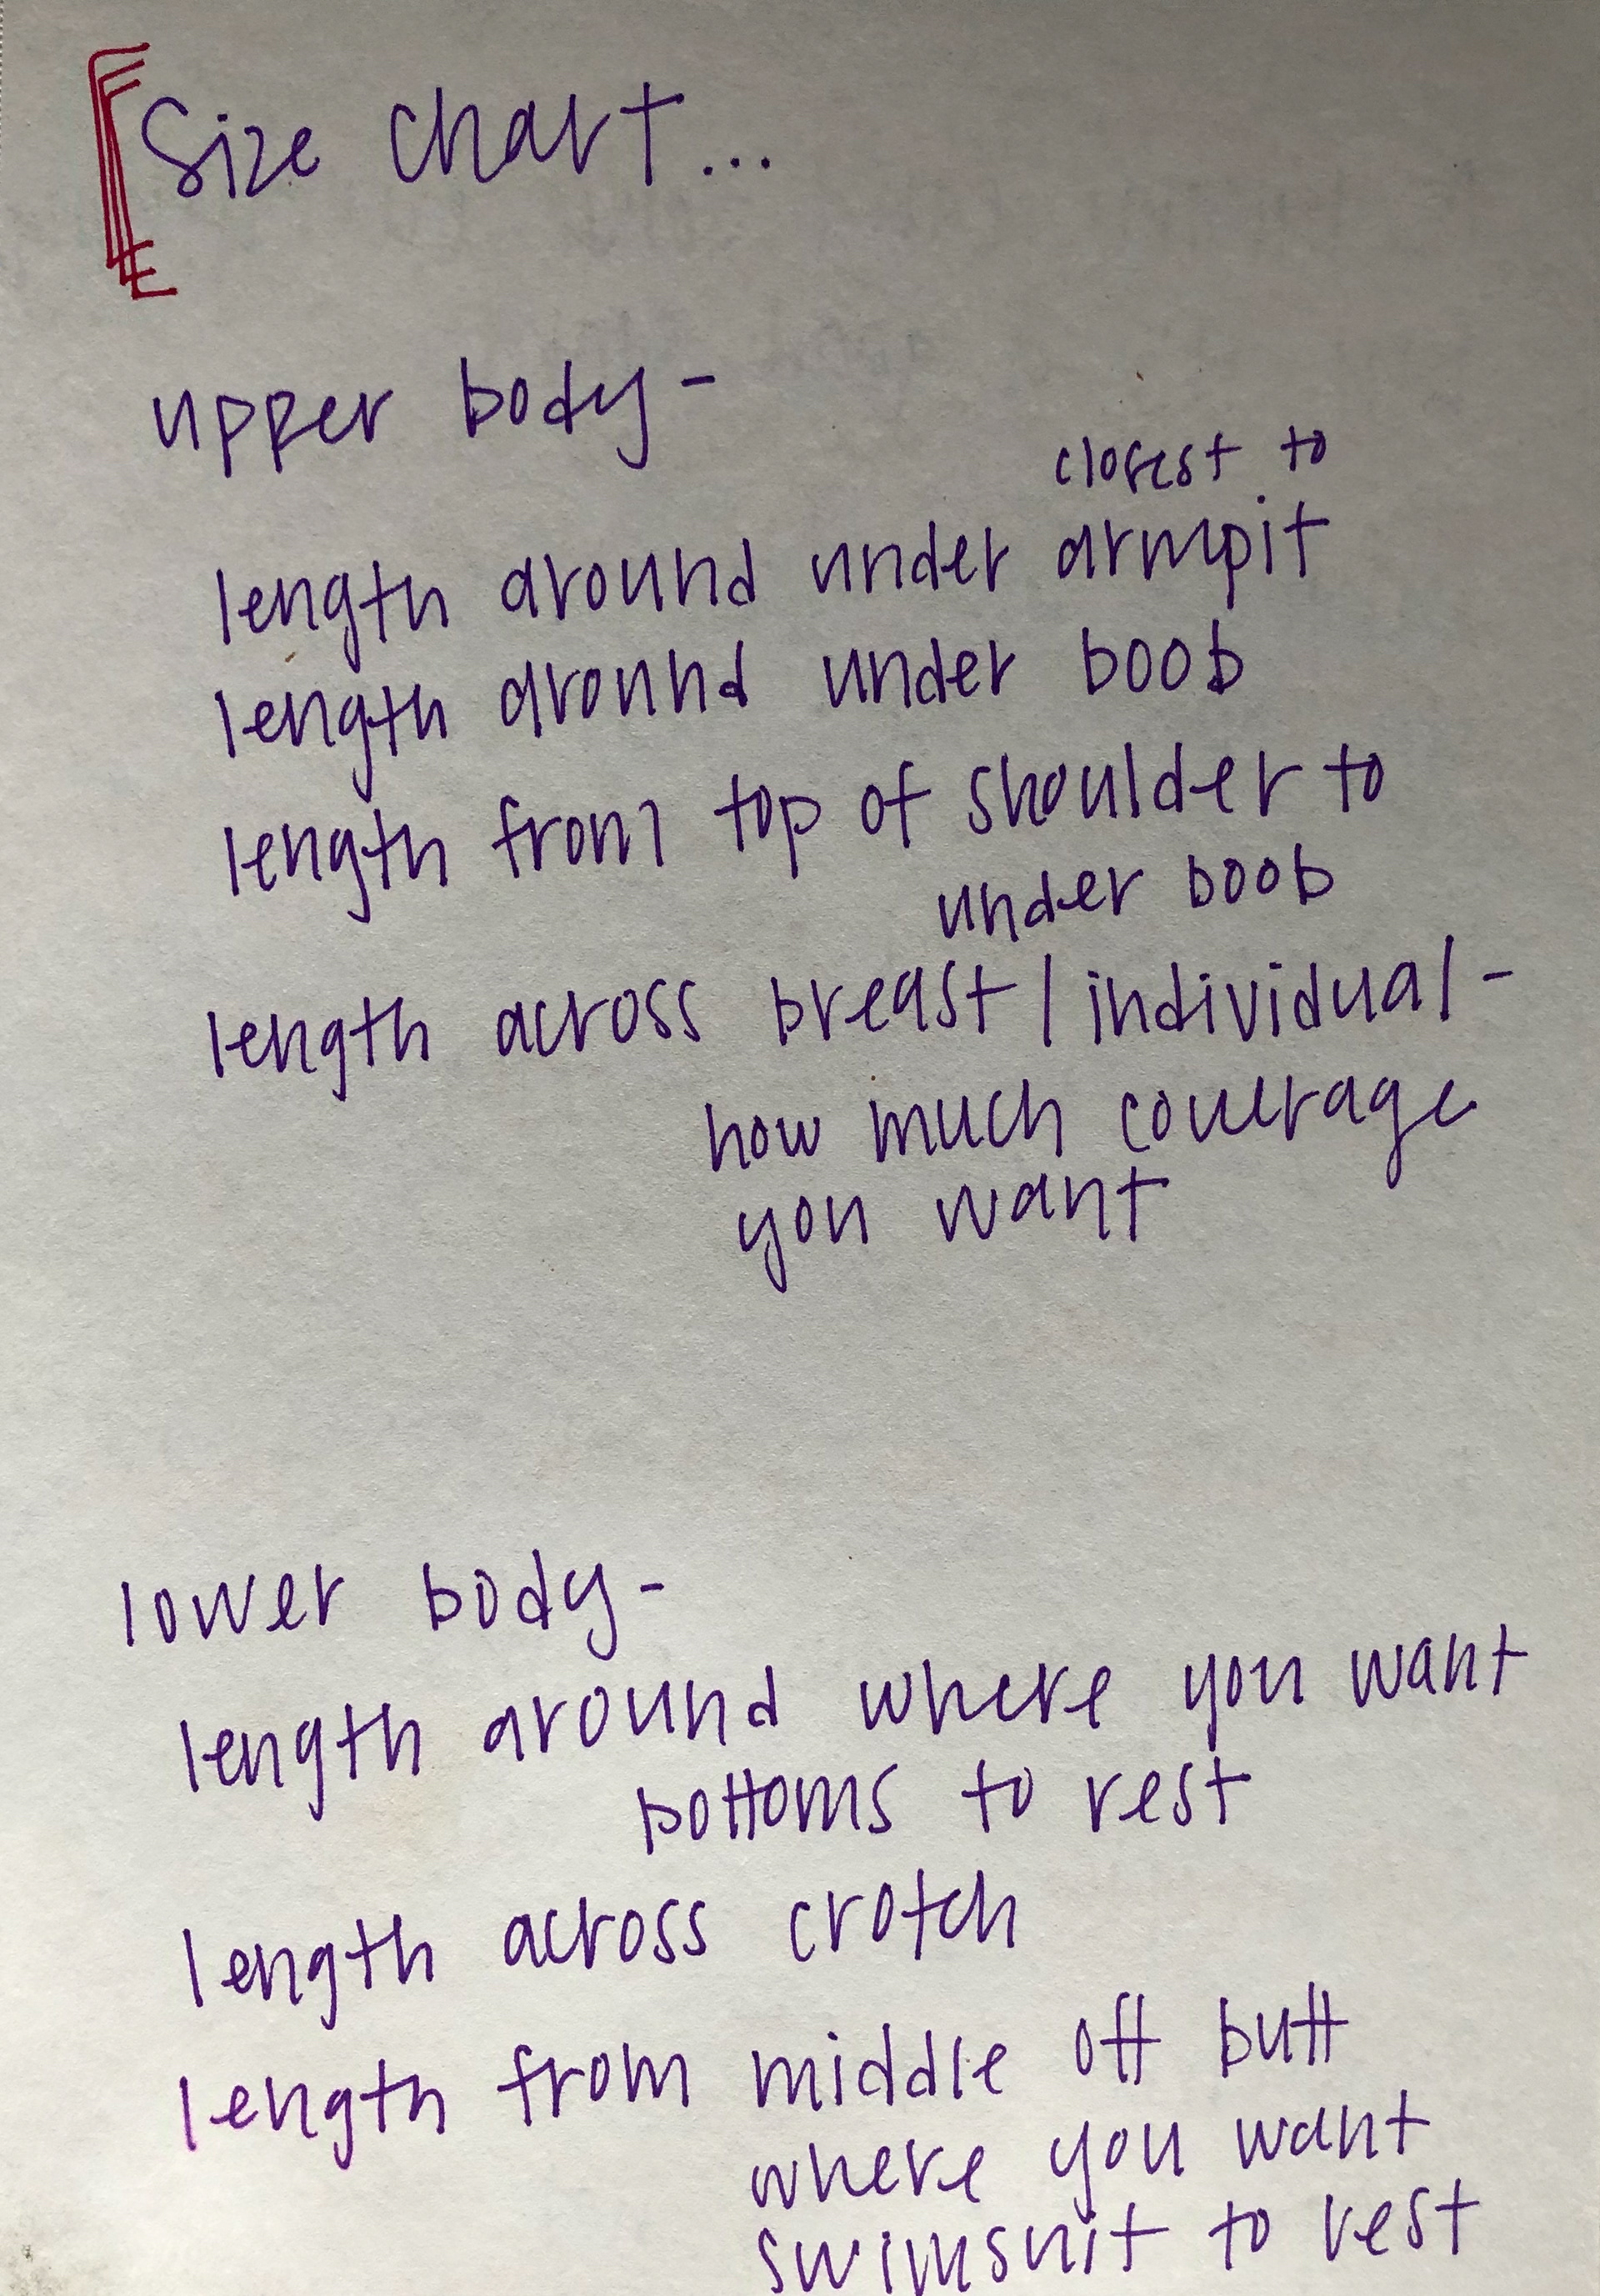 Size chart...
upper body -
closest to
length around under armpit
length around under boob
length from top of shoulder to
under boob
length across breast / individual -
how much coverage
you want
lower body -
length around where you want
bottoms to rest
length across crotch
length from middle off butt
where you want
swimsuit to rest